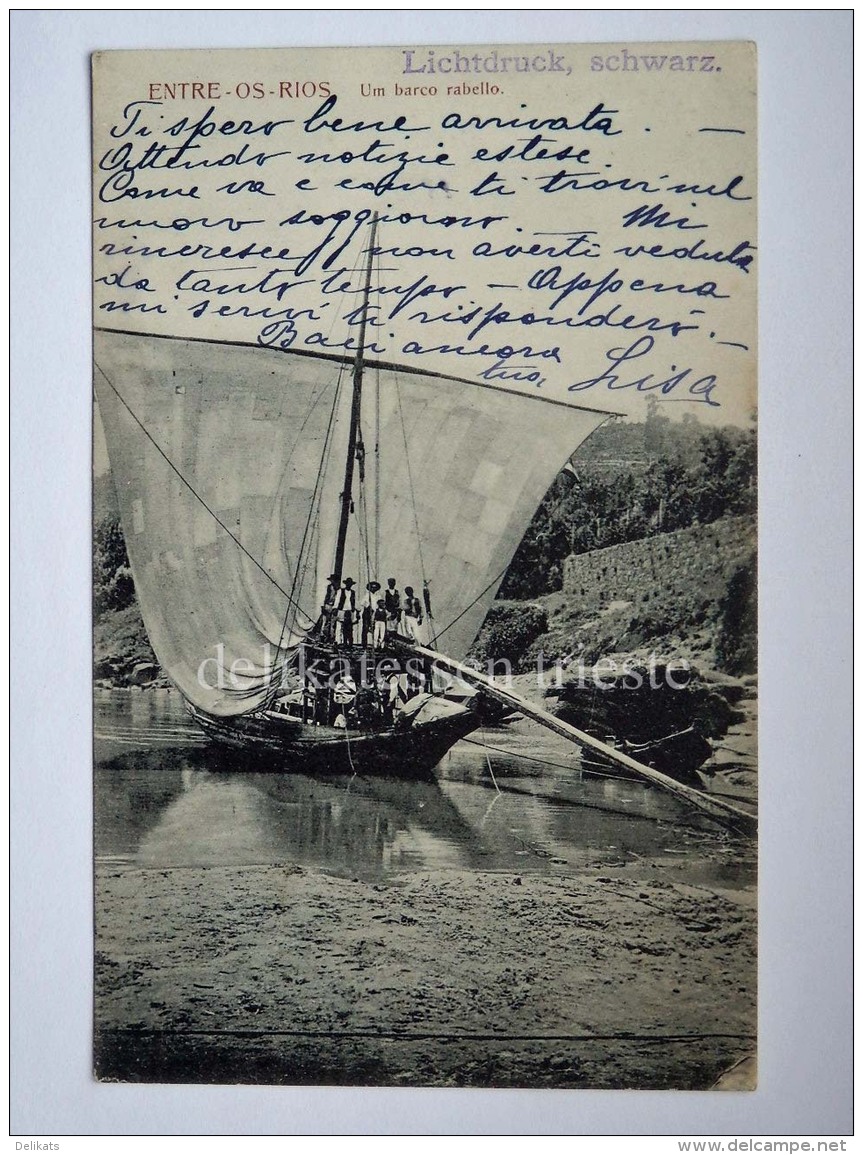 Lichtdruck, schwarz.
ENTRE-OS-RIOS. Um barco rabello.
Ti spero bene arrivata. —
Attendo notizie estese.
Come va e come ti trovi nel
nuovo soggiorno. — Mi
rincresce non averti veduta
da tanto tempo — Appena
mi scrivi ti risponderò. —
Baci ancora
tua Lisa
delikatessen trieste
Delikats
www.delcampe.net